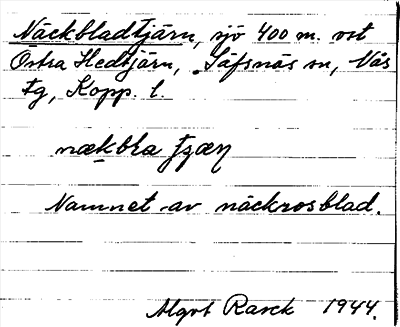 Näckbladtjärn, sjö 400 m. ost
Östra Hedtjärn, Säfsnäs sn, Näs
fg, Kopp. l.
nækbla
Namnet av näckrosblad.
Algot Rarck 1944.